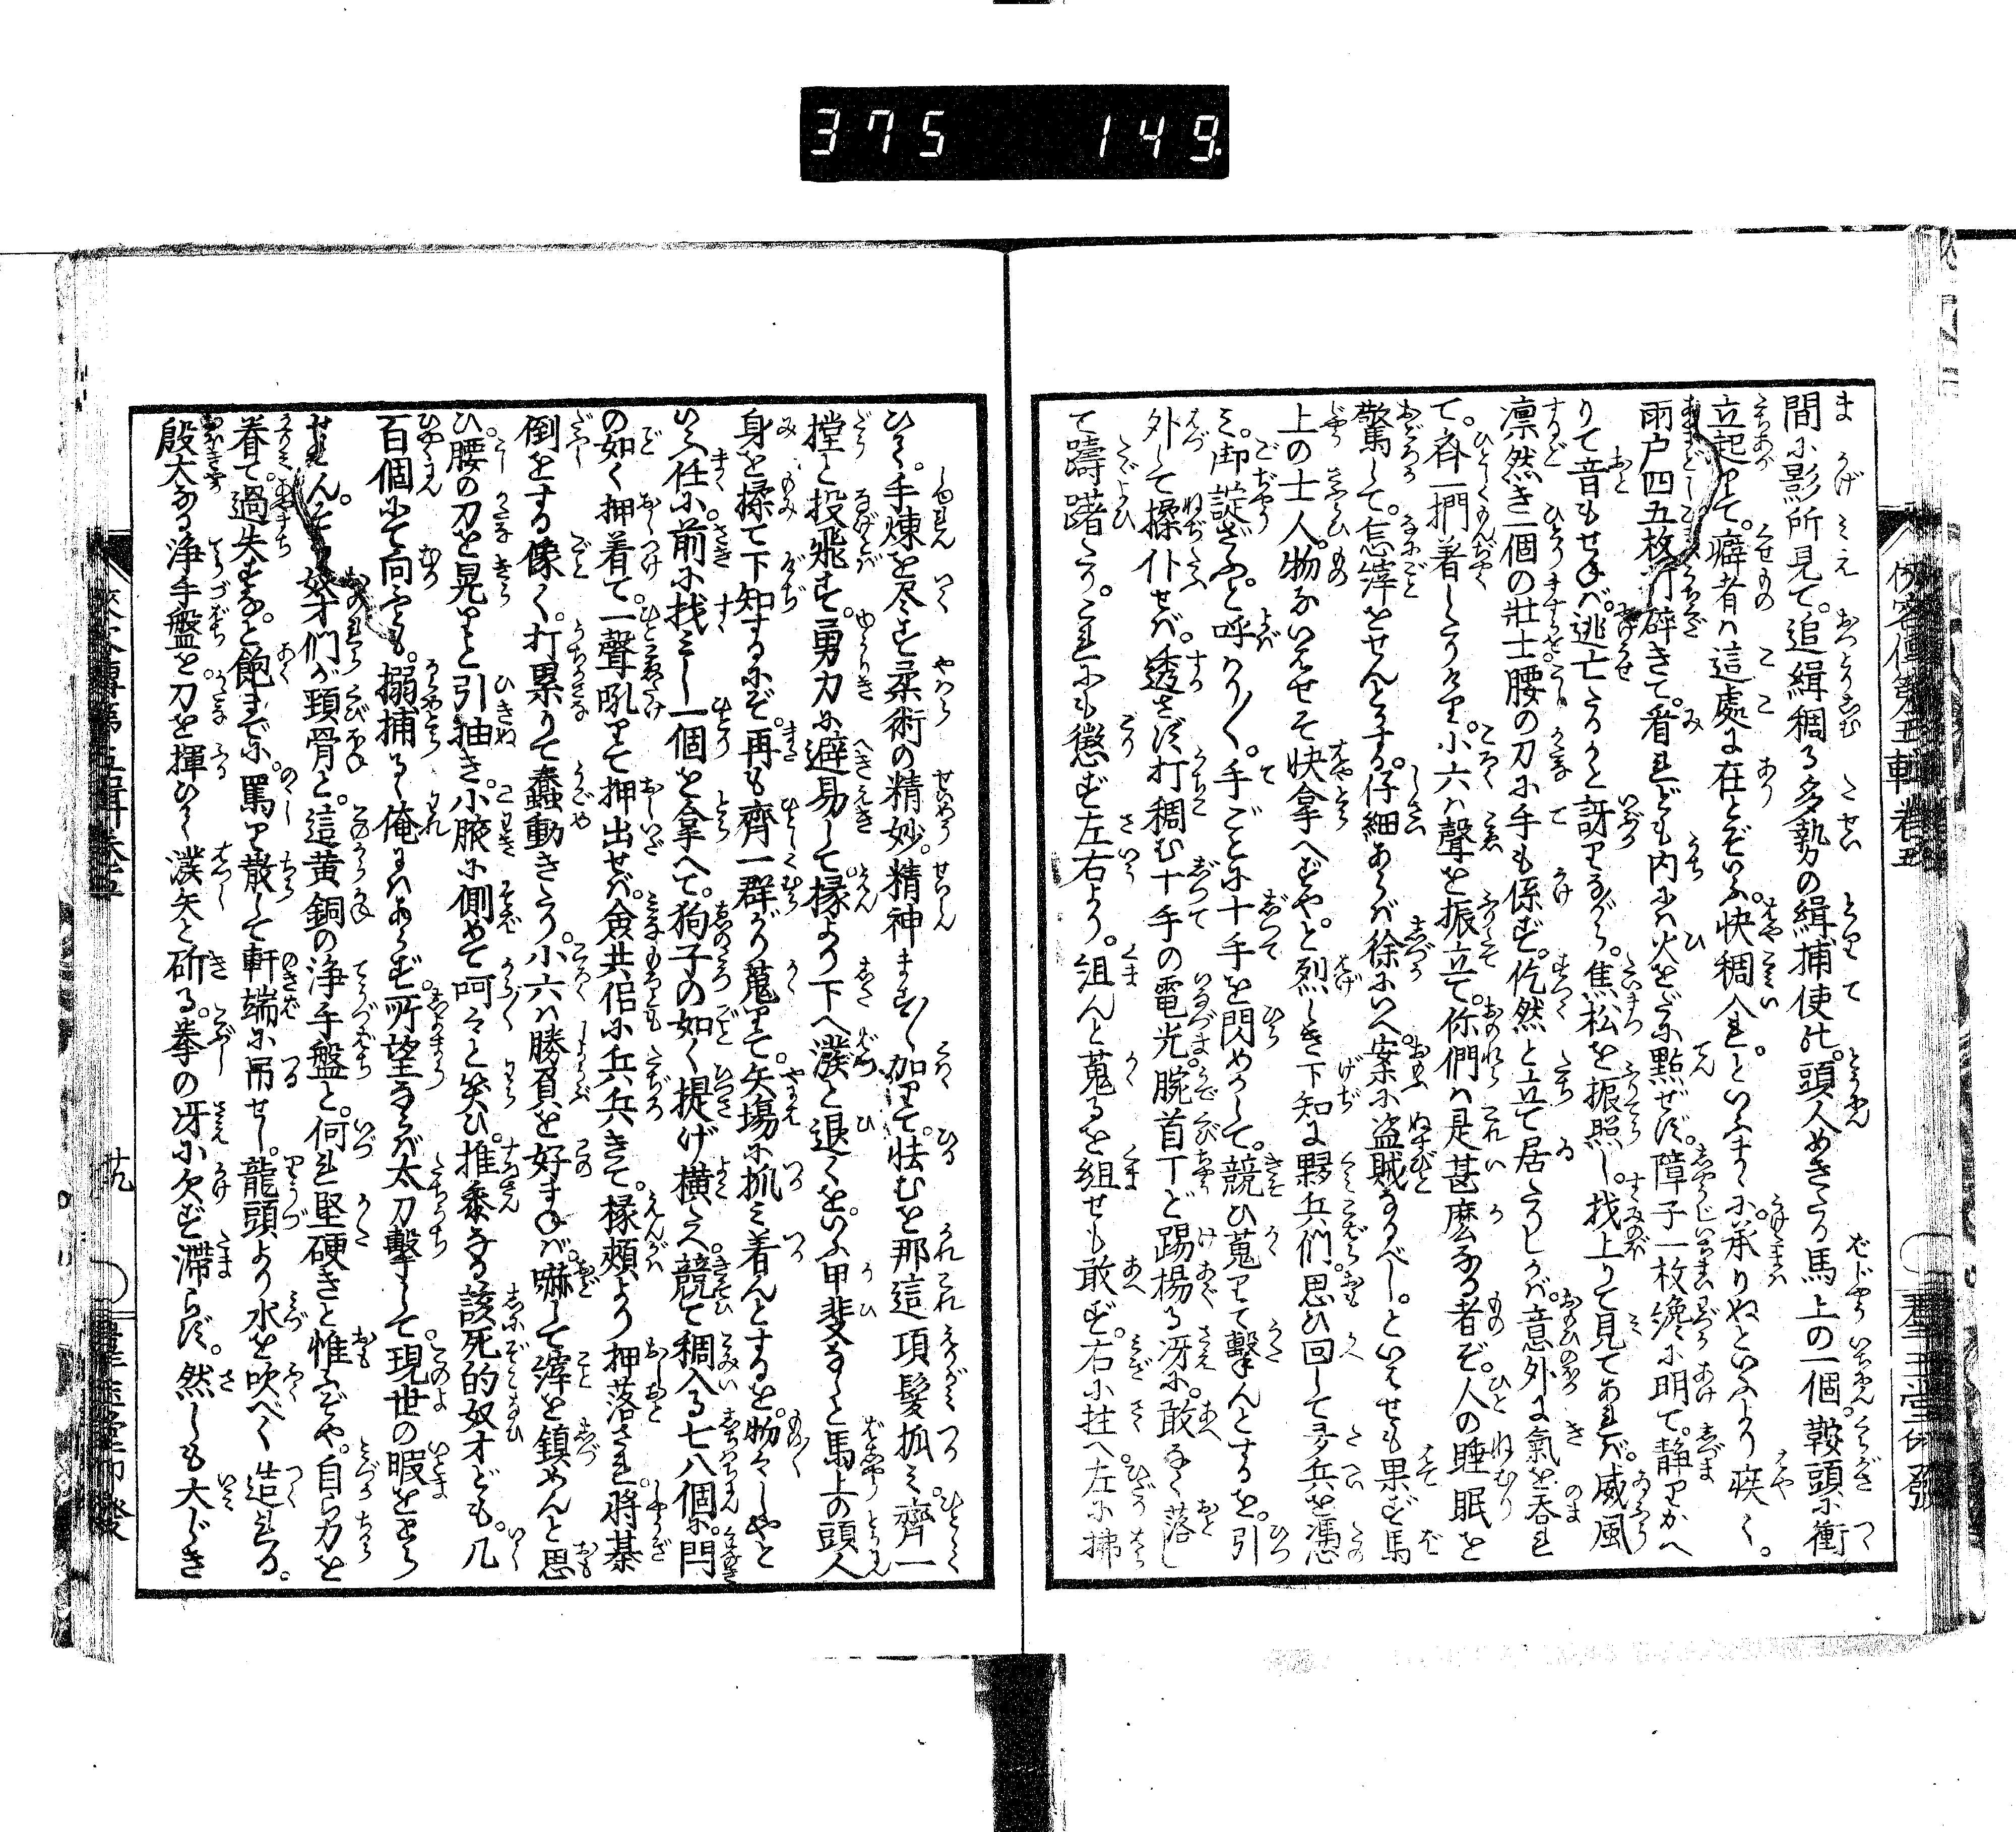 375 149
俠客傳第五輯卷五
間に影所見て。追緝稠る多勢の緝捕使。頭人めきたる馬上の一個。鞍頭に衝
立起りて。癖者ハ這處に在とぞいふ。快稠入れ。といふまゝに。承りぬといふより疾く。
雨戸四五枚打碎きて。看れども内にハ火をだに點ぜず。障子一枚纔に明て。静りかへ
りて音もせねバ。逃亡たるかと訝りながら。焦松を振照し。找上りて見てあれバ。威風
凛然き一個の壮士腰の刀に手も係ず。仡然と立て居たりしかバ。意外に氣を呑れ
て。斉一捫着したりけり。小六ハ聲を振立て。你們ハ是甚麽なる者ぞ。人の睡眠を
驚して。怎滓をせんとする。仔細あらバ徐にいへ。案に盗賊なるべし。といはせも果ず馬
上の士人。物ないはせそ快拿へずや。と烈しき下知に夥兵們。思ひ回して多兵を憑
ミ。御諚ざふ。と呼ハり〳〵。手ごとに十手を閃めかして。競ひ蒐りて撃んとするを。引
外して揉仆せバ。透さず打稠む十手の電光。腕首丁ど踢揚る冴に。敢なく落し
て躊躇たり。これにも懲ず左右より。組んと蒐るを組せも敢ず。右に拄へ左に拂
群玉堂
ひく。手煉を尽す柔術の精妙。精神ます〳〵加りて。怯むを那這項髪抓ミ。齊一
摚と投飛す。勇力に避易して。縁より下へ潑と退くを。いふ甲斐なしと馬上の頭人
身を揉て下知するにぞ。再も齊一群がり蒐りて。矢塲に抓ミ着んとするを。物々しやと
いふ任に。前に找ミし一個を拿へて。狗子の如く提げ横たへ。競て稠入る七八個に。閂
の如く押着て。一聲吼りて押出せバ。僉共侶に兵兵きて。椽頬より押落され。將棊
倒をする像く。打累りて蠢動きたり。小六ハ勝負を好まねバ。嚇して滓を鎮めんと思
ひ。腰の刀を晃りと引抽き。小腋に側めて呵々と笑ひ。推參なる該死的奴才ども。几
百個にて向ふとも。搦捕るゝ俺にハあらず。所望ならバ太刀撃して。現世の暇をとら
せん。奴才們が頚骨と。這黄銅の浄手盤と。何れ堅硬きと惟ふぞや。自ら力を
着て。過失すな。と飽まで。罵り散して軒端に吊せし。龍頭より水を吹べく造れる。
殷大なる浄手盤を。刀を揮ひく潑矢と斫る。拳の冴に欠ず滞らず。然しも大じき
俠客傳第五輯卷五
廿九
群玉堂